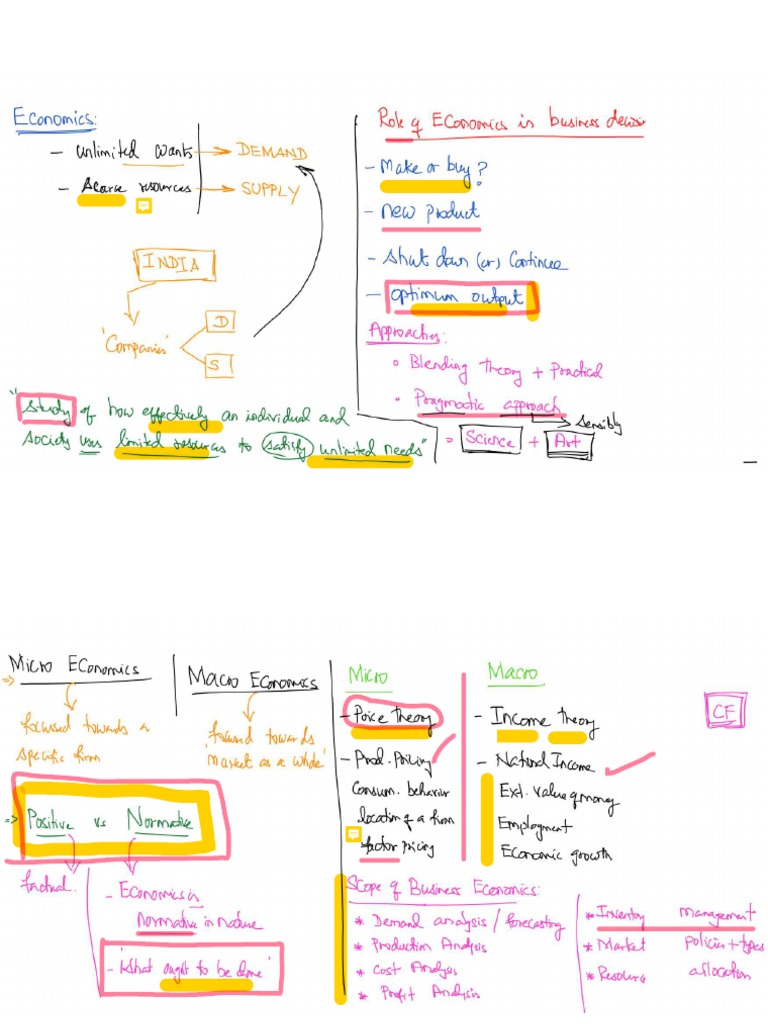 Economics:
- unlimited wants → DEMAND
- Scarce resources → SUPPLY
INDIA
'Companies'
D
S
"Study of how effectively an individual and
society uses limited resources to satisfy unlimited needs"
Role of Economics in business decisi
- Make or buy?
- new product
- Shut down (or) Continue
- optimum output
Approaches:
• Blending theory + Practical
• Pragmatic approach
→ sensibly
= Science + Art
Micro Economics
focused towards a
specific firm
Macro Economics
focused towards
'market as a whole'
⇒ Positive vs Normative
factual.
- Economics is
normative in nature
- 'what ought to be done'
Micro
- Price theory
- Prod. pricing
Consum. behavior
location of a firm
factor pricing
Macro
- Income theory
- National Income
Ext. value of money
Employment
Economic growth
CF
Scope of Business Economics:
* Demand analysis / forecasting
* Production Analysis
* Cost Analysis
* Profit Analysis
* Inventory management
* Market policies + types
* Resource allocation